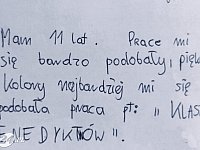 Mam 11 lat. Prace mi
się bardzo podobały, pięk
Kolory najbardziej mi się
podobała praca pt: " KLAS
ENEDYKTÓW ".